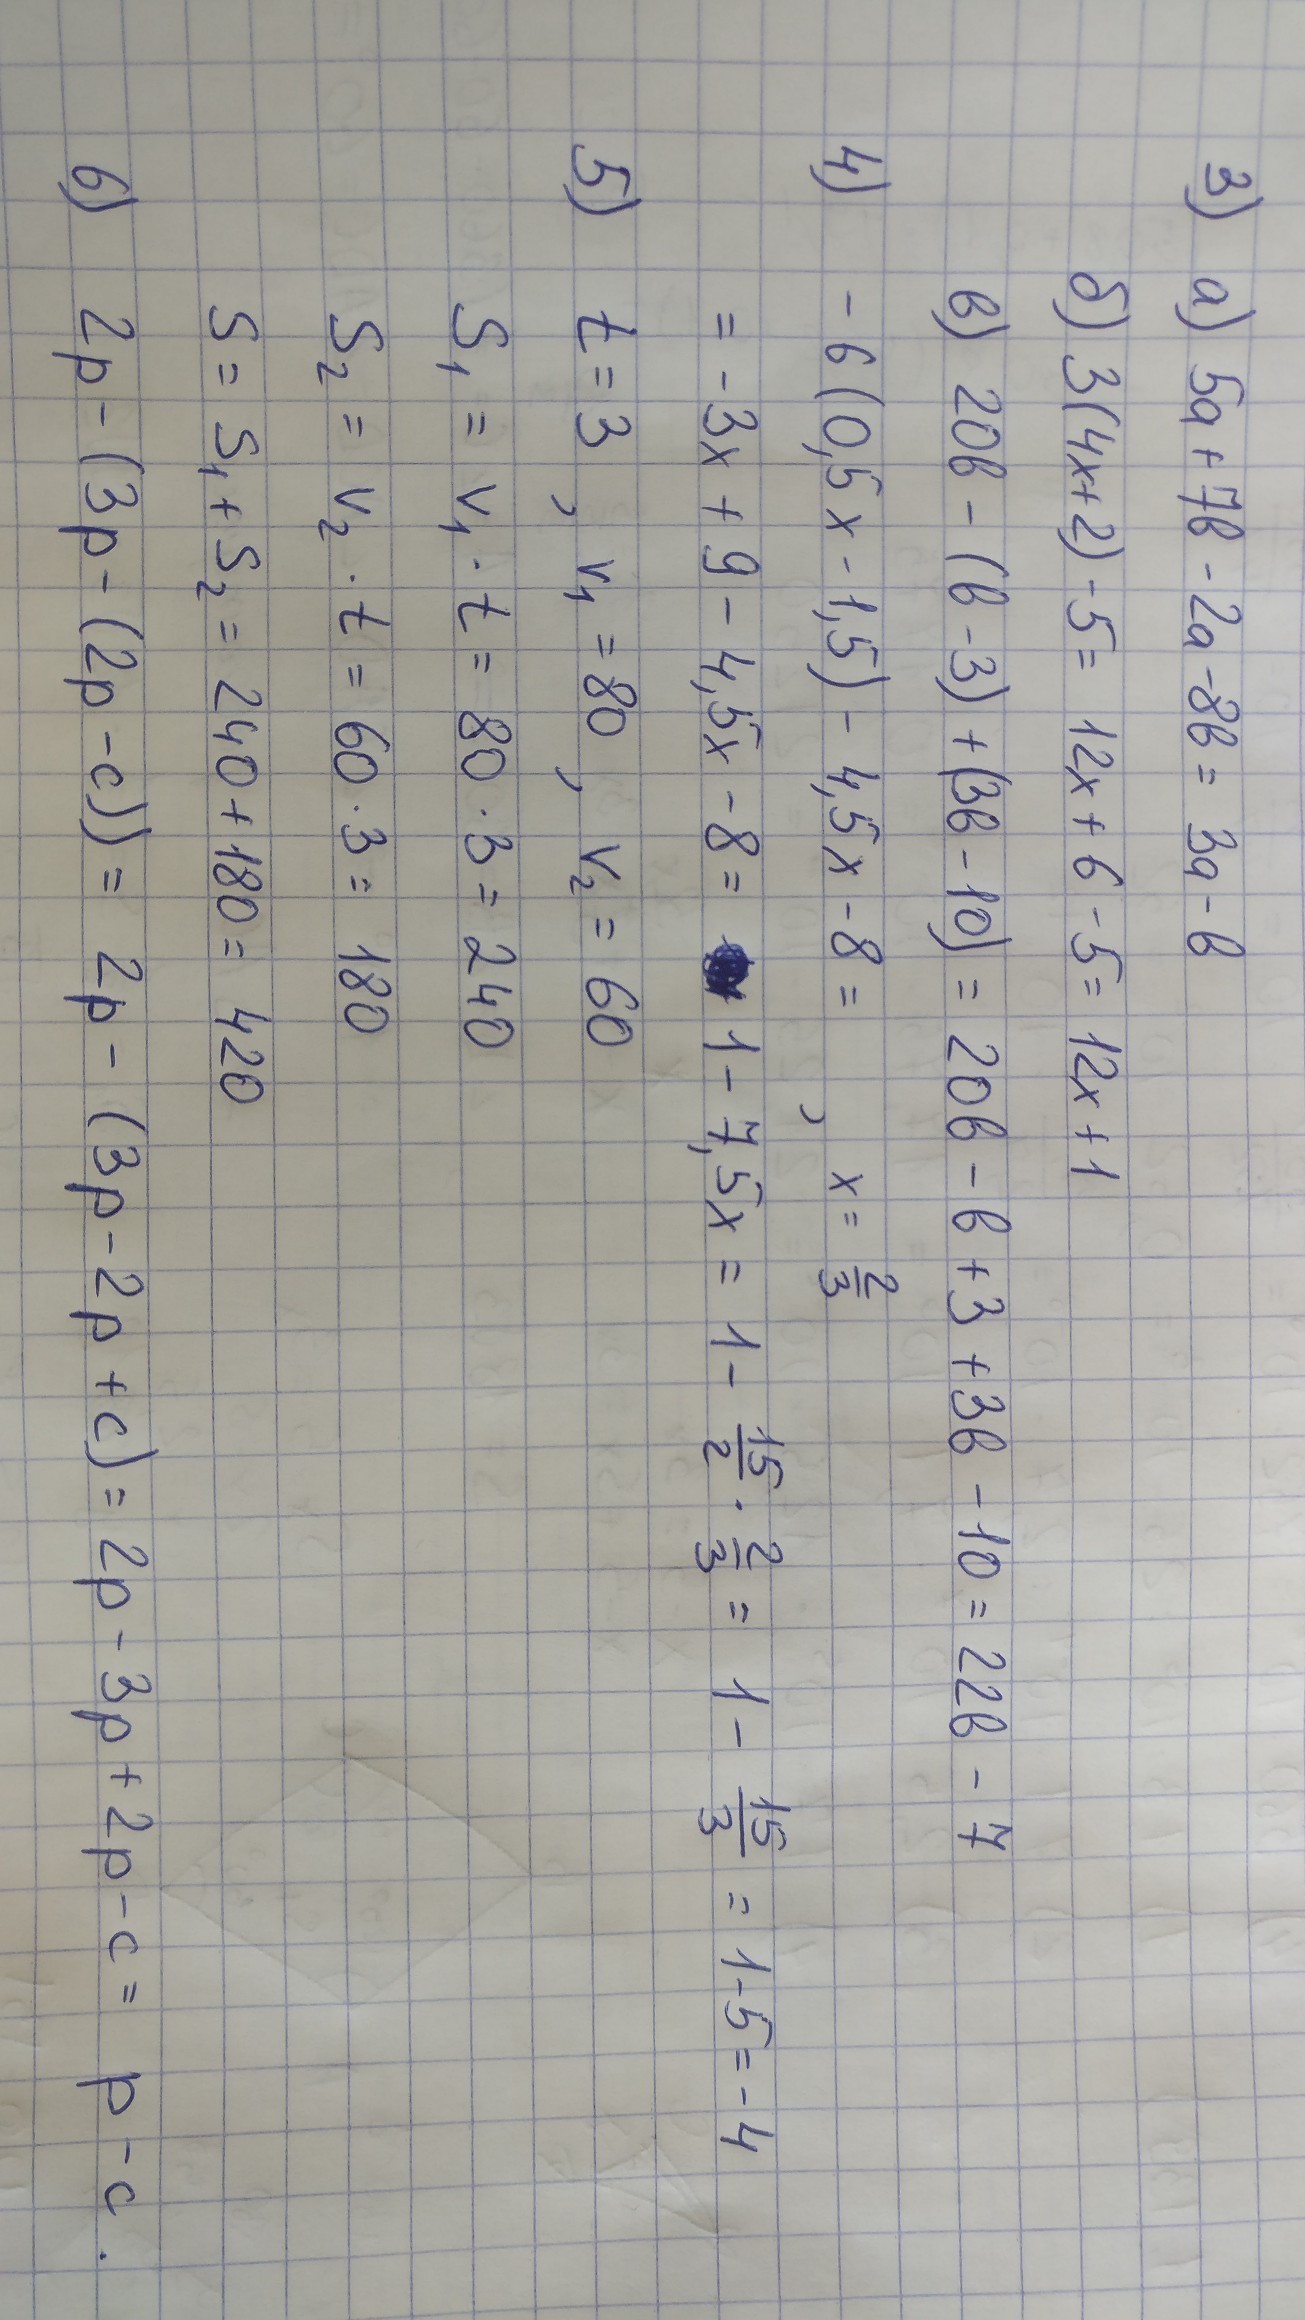 3) а) 5a + 7в - 2a - 8в = 3a - в
б) 3(4x+2) - 5 = 12x + 6 - 5 = 12x + 1
в) 20в - (в - 3) + (3в - 10) = 20в - в + 3 + 3в - 10 = 22в - 7
4) - 6(0,5x - 1,5) - 4,5x - 8 = , x = 2/3
= -3x + 9 - 4,5x - 8 = 1 - 7,5x = 1 - 15/2 · 2/3 = 1 - 15/3 = 1 - 5 = -4
5) t = 3 , v₁ = 80 , v₂ = 60
S₁ = v₁ · t = 80 · 3 = 240
S₂ = v₂ · t = 60 · 3 = 180
S = S₁ + S₂ = 240 + 180 = 420
6) 2p - (3p - (2p - c)) = 2p - (3p - 2p + c) = 2p - 3p + 2p - c = p - c .